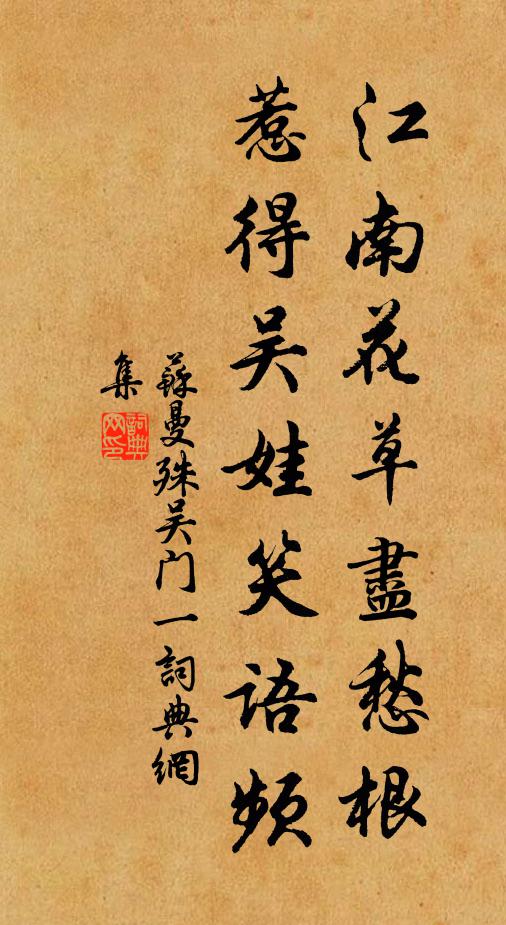 江南花草盡愁根
惹得吴娃笑语頻
蘇曼殊吴门一詞典網
集
詞典網印